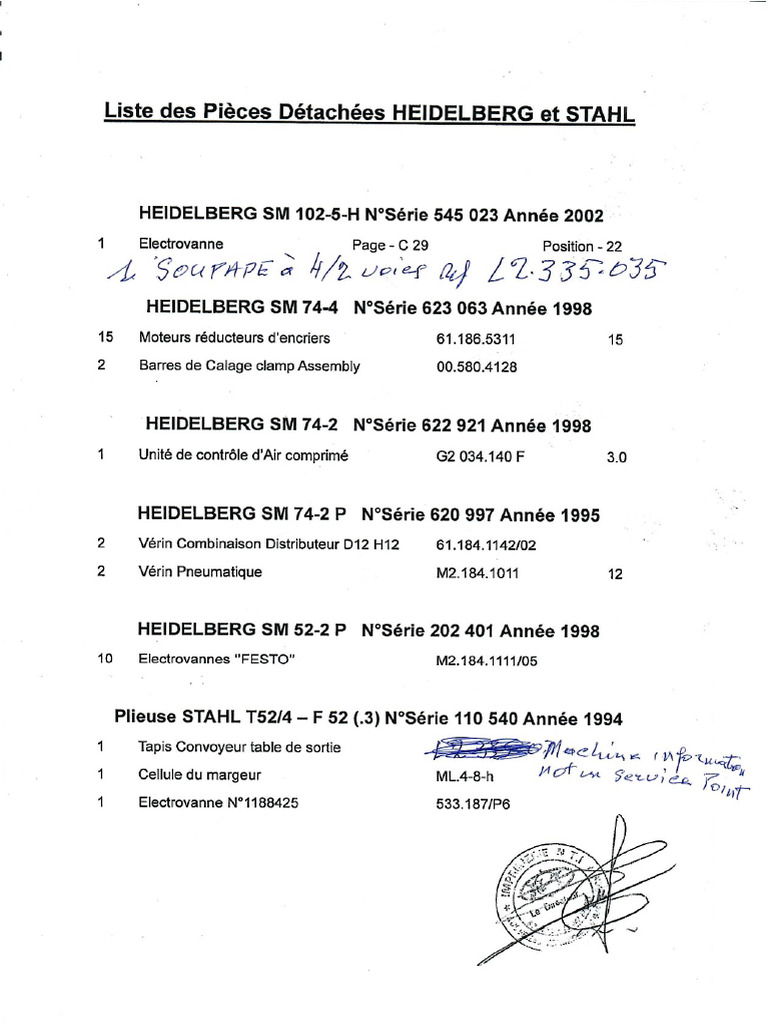 Liste des Pièces Détachées HEIDELBERG et STAHL
HEIDELBERG SM 102-5-H N°Série 545 023 Année 2002
1 Electrovanne Page - C 29 Position - 22
1. SOUPAPE à 4/2 voies ref L2.335.035
HEIDELBERG SM 74-4 N°Série 623 063 Année 1998
15 Moteurs réducteurs d'encriers 61.186.5311 15
2 Barres de Calage clamp Assembly 00.580.4128
HEIDELBERG SM 74-2 N°Série 622 921 Année 1998
1 Unité de contrôle d'Air comprimé G2 034.140 F 3.0
HEIDELBERG SM 74-2 P N°Série 620 997 Année 1995
2 Vérin Combinaison Distributeur D12 H12 61.184.1142/02
2 Vérin Pneumatique M2.184.1011 12
HEIDELBERG SM 52-2 P N°Série 202 401 Année 1998
10 Electrovannes "FESTO" M2.184.1111/05
Plieuse STAHL T52/4 – F 52 (.3) N°Série 110 540 Année 1994
1 Tapis Convoyeur table de sortie Machine information
1 Cellule du margeur ML.4-8-h not in Service Point
1 Electrovanne N°1188425 533.187/P6
IMPRIMERIE N T I
Le Directeur